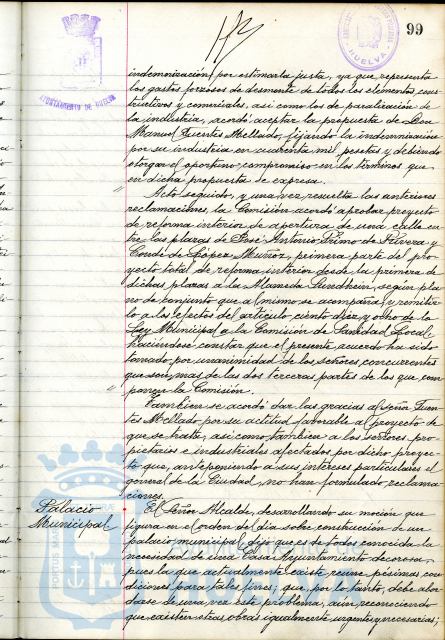 99
AYUNTAMIENTO DE HUELVA
HUELVA
indemnización, por estimarla justa, ya que representa
los gastos forzosos de desmonte de todos los elementos cons-
tructivos y comerciales, asi como los de paralización de
la industria, acordó aceptar la propuesta de Don
Manuel Fuentes Mellado, fijando la indemnización
por su industria en cuarenta mil pesetas y debiendo
otorgar el oportuno compromiso en los términos que
en dicha propuesta se expresa.
" Acto seguido, y una vez resuelta las anteriores
reclamaciones, la Comisión acordó aprobar proyecto
de reforma interior de apertura de una calle en-
tre las plazas de José Antonio Primo de Rivera y
Conde de López Muñoz, primera parte del pro-
yecto total de reforma interior desde la primera de
dichas plazas a la Alameda Sundheim, según pla-
no de conjunto que al mismo se acompaña, y remitir-
lo a los efectos del artículo ciento diez y ocho de la
Ley Municipal a la Comisión de Sanidad Local,
haciéndose constar que el presente acuerdo ha sido
tomado por unanimidad de los señores concurrentes
que son mas de las dos terceras partes de los que com-
ponen la Comisión.
" Tambien se acordó dar las gracias al señor Fuen-
tes Mellado por su actitud favorable al proyecto de
que se trata, asi como tambien a los señores pro-
pietarios e industriales afectados por dicho proyec-
to que, anteponiendo a sus intereses particulares el
general de la Ciudad, no han formulado reclama-
ciones.
Palacio
Municipal
El Señor Alcalde, desarrollando su moción que
figura en el orden del dia sobre construcción de un
palacio municipal, dijo que es de todos conocida la
necesidad de una Casa Ayuntamiento decorosa,
pues la que actualmente existe reune pésimas con-
diciones para tales fines; que, por lo tanto, debe abor-
darse de una vez este problema, aun reconociendo
que existen otras obras igualmente urgentes y necesarias,